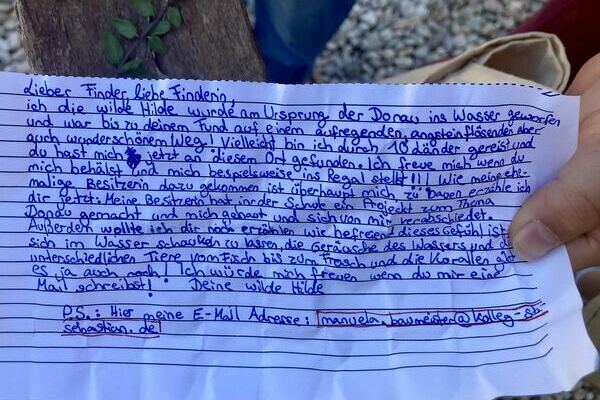 Lieber Finder, liebe Finderin,
ich die wilde Hilde wurde am Ursprung der Donau ins Wasser geworfen
und war bis zu deinem Fund auf einem aufregenden, angsteinflösenden aber
auch wunderschönem Weg! Vielleicht bin ich durch 10 Länder gereist und
du hast mich jetzt an diesem Ort gefunden. Ich freue mich wenn du
mich behälst und mich bespielsweise ins Regal stellt!!! Wie meine ehe-
malige Besitzerin dazu gekommen ist überhaupt mich zu bauen erzähle ich
dir jetzt. Meine Besitzerin hat in der Schule ein Projekt zum Thema
Donau gemacht und mich gebaut und sich von mir verabschiedet.
Außerdem wollte ich dir noch erzählen wie befreiend dieses Gefühl ist
sich im Wasser schaukeln zu lassen, die Geräusche des Wassers und die
unterschiedlichen Tiere vom Fisch bis zum Frosch und die Korallen gibt
es ja auch noch! Ich würde mich freuen wenn du mir eine
Mail schreibst! Deine wilde Hilde
P.S.: Hier meine E-Mail Adresse: manuela.baumeister@kolleg-st-
sebastian.de